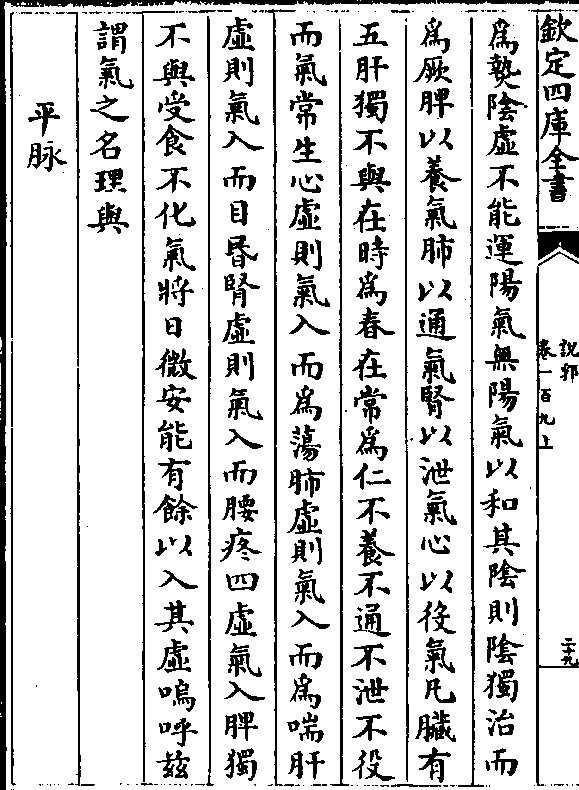 欽定四庫全書
說郛
卷一百九上
二十九
為熱陰虛不能運陽氣無陽氣以和其陰則陰獨治而
為厥脾以養氣肺以通氣腎以泄氣心以役氣凡臟有
五肝獨不與在時為春在常為仁不養不通不泄不役
而氣常生心虛則氣入而為蕩肺虛則氣入而為喘肝
虛則氣入而目昬腎虛則氣入而腰疼四虛氣入脾獨
不與受食不化氣將日微安能有餘以入其虛嗚呼兹
謂氣之名理與
平脉